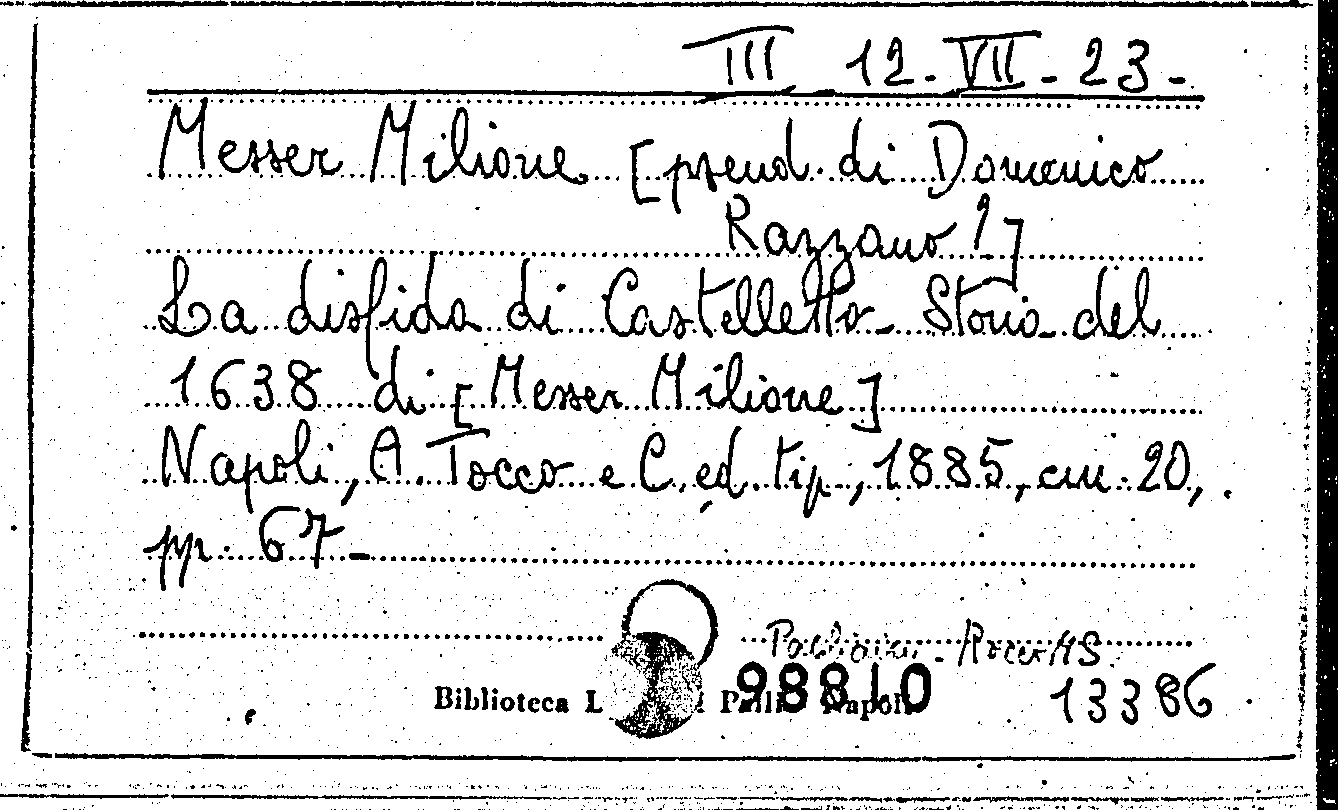 III 12-VII-23-
Messer Milione [pseud. di Domenico
Razzano?]
La disfida di Castelletto- Storia del
1638 di [Messer Milione]
Napoli, A. Tocco e C. ed. tip., 1885, cm. 20,
pp. 67-
Biblioteca 98810
13386